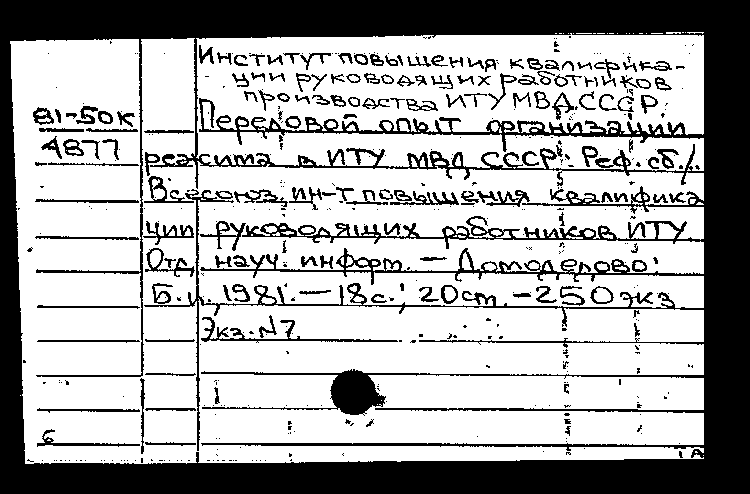 Институт повышения квалифика-
ции руководящих работников
производства ИТУ МВД СССР.
81-50К
4877
Передовой опыт организации
режима в ИТУ МВД СССР: Реф. сб./
Всесоюз. ин-т повышения квалифика
ции руководящих работников ИТУ
Отд. науч. информ. — Домодедово:
Б.и., 1981. — 18с.; 20см. - 250экз
Экз. N7.
1
6
ТА